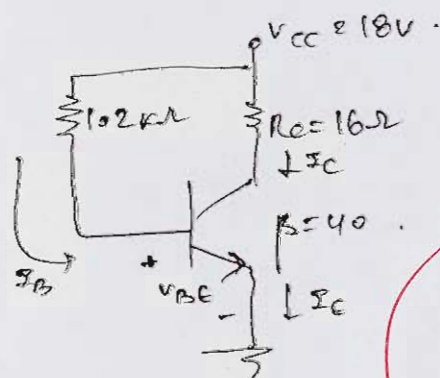 VCC = 18V.
1.2KΩ
RC = 16Ω
↓ IC
β = 40.
IB
+
VBE
-
↓ IE